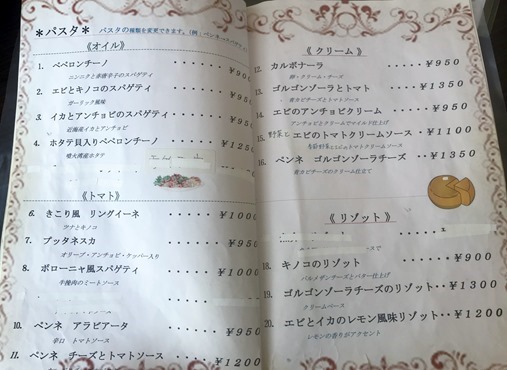 *パスタ* パスタの種類を変更できます。
《オイル》
1. ペペロンチーノ ・・・・・ ¥900
ニンニクと赤唐辛子のスパゲティ
2. エビとキノコのスパゲティ
ガーリック風味
3. イカとアンチョビのスパゲティ
近海産イカとアンチョビ
4. ホタテ貝入りペペロンチーノ ・・・ ¥1250
噴火湾産ホタテ
《トマト》
6. きこり風 リングイーネ ・・・・・ ¥1000
ツナとキノコ
7. プッタネスカ ・・・・・ ¥950
オリーブ・アンチョビ・ケッパー入り
8. ボローニャ風スパゲティ ・・・・・ ¥1000
牛挽肉のミートソース
10. ペンネ アラビアータ ・・・・・ ¥950
辛口 トマトソース
11. ペンネ チーズとトマトソース ・・・・ ¥1200
《クリーム》
12. カルボナーラ ・・・・・ ¥950
卵・クリーム・チーズ
13. ゴルゴンゾーラとトマト ・・・・ ¥1350
青カビチーズとトマトソース
14. エビのアンチョビクリーム ・・・・ ¥950
アンチョビとクリームでマイルド仕上げ
15. 野菜とエビのトマトクリームソース ・・・ ¥1100
16. ペンネ ゴルゴンゾーラチーズ ・・・ ¥1350
青カビチーズのクリーム仕立て
《リゾット》
18. キノコのリゾット ・・・・・ ¥900
パルメザンチーズとバター仕上げ
19. ゴルゴンゾーラチーズのリゾット・・ ¥1300
クリームベース
20. エビとイカのレモン風味リゾット・・ ¥1200
レモンの香りがアクセント